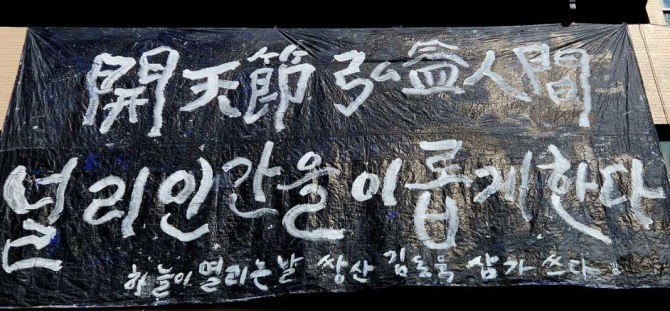 開天節 弘益人間
널리인간을이롭게한다
하늘이 열리는날 쌍산 김동욱 삼가 쓰다